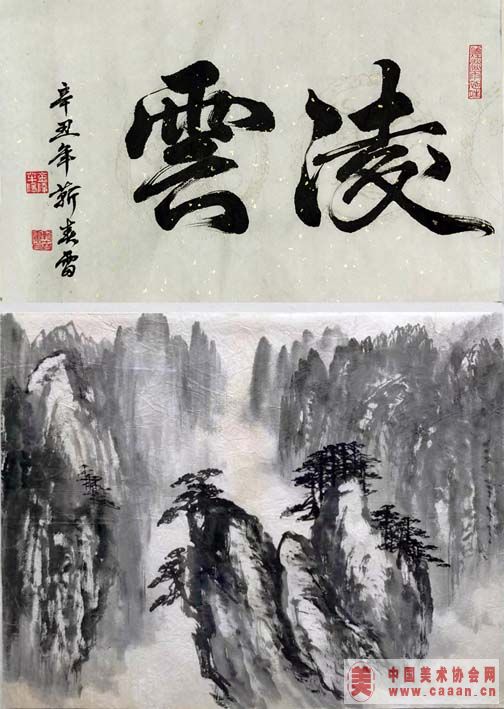 凌雲
辛丑年靳春雷
中国美术协会网
www.caaan.cn
美